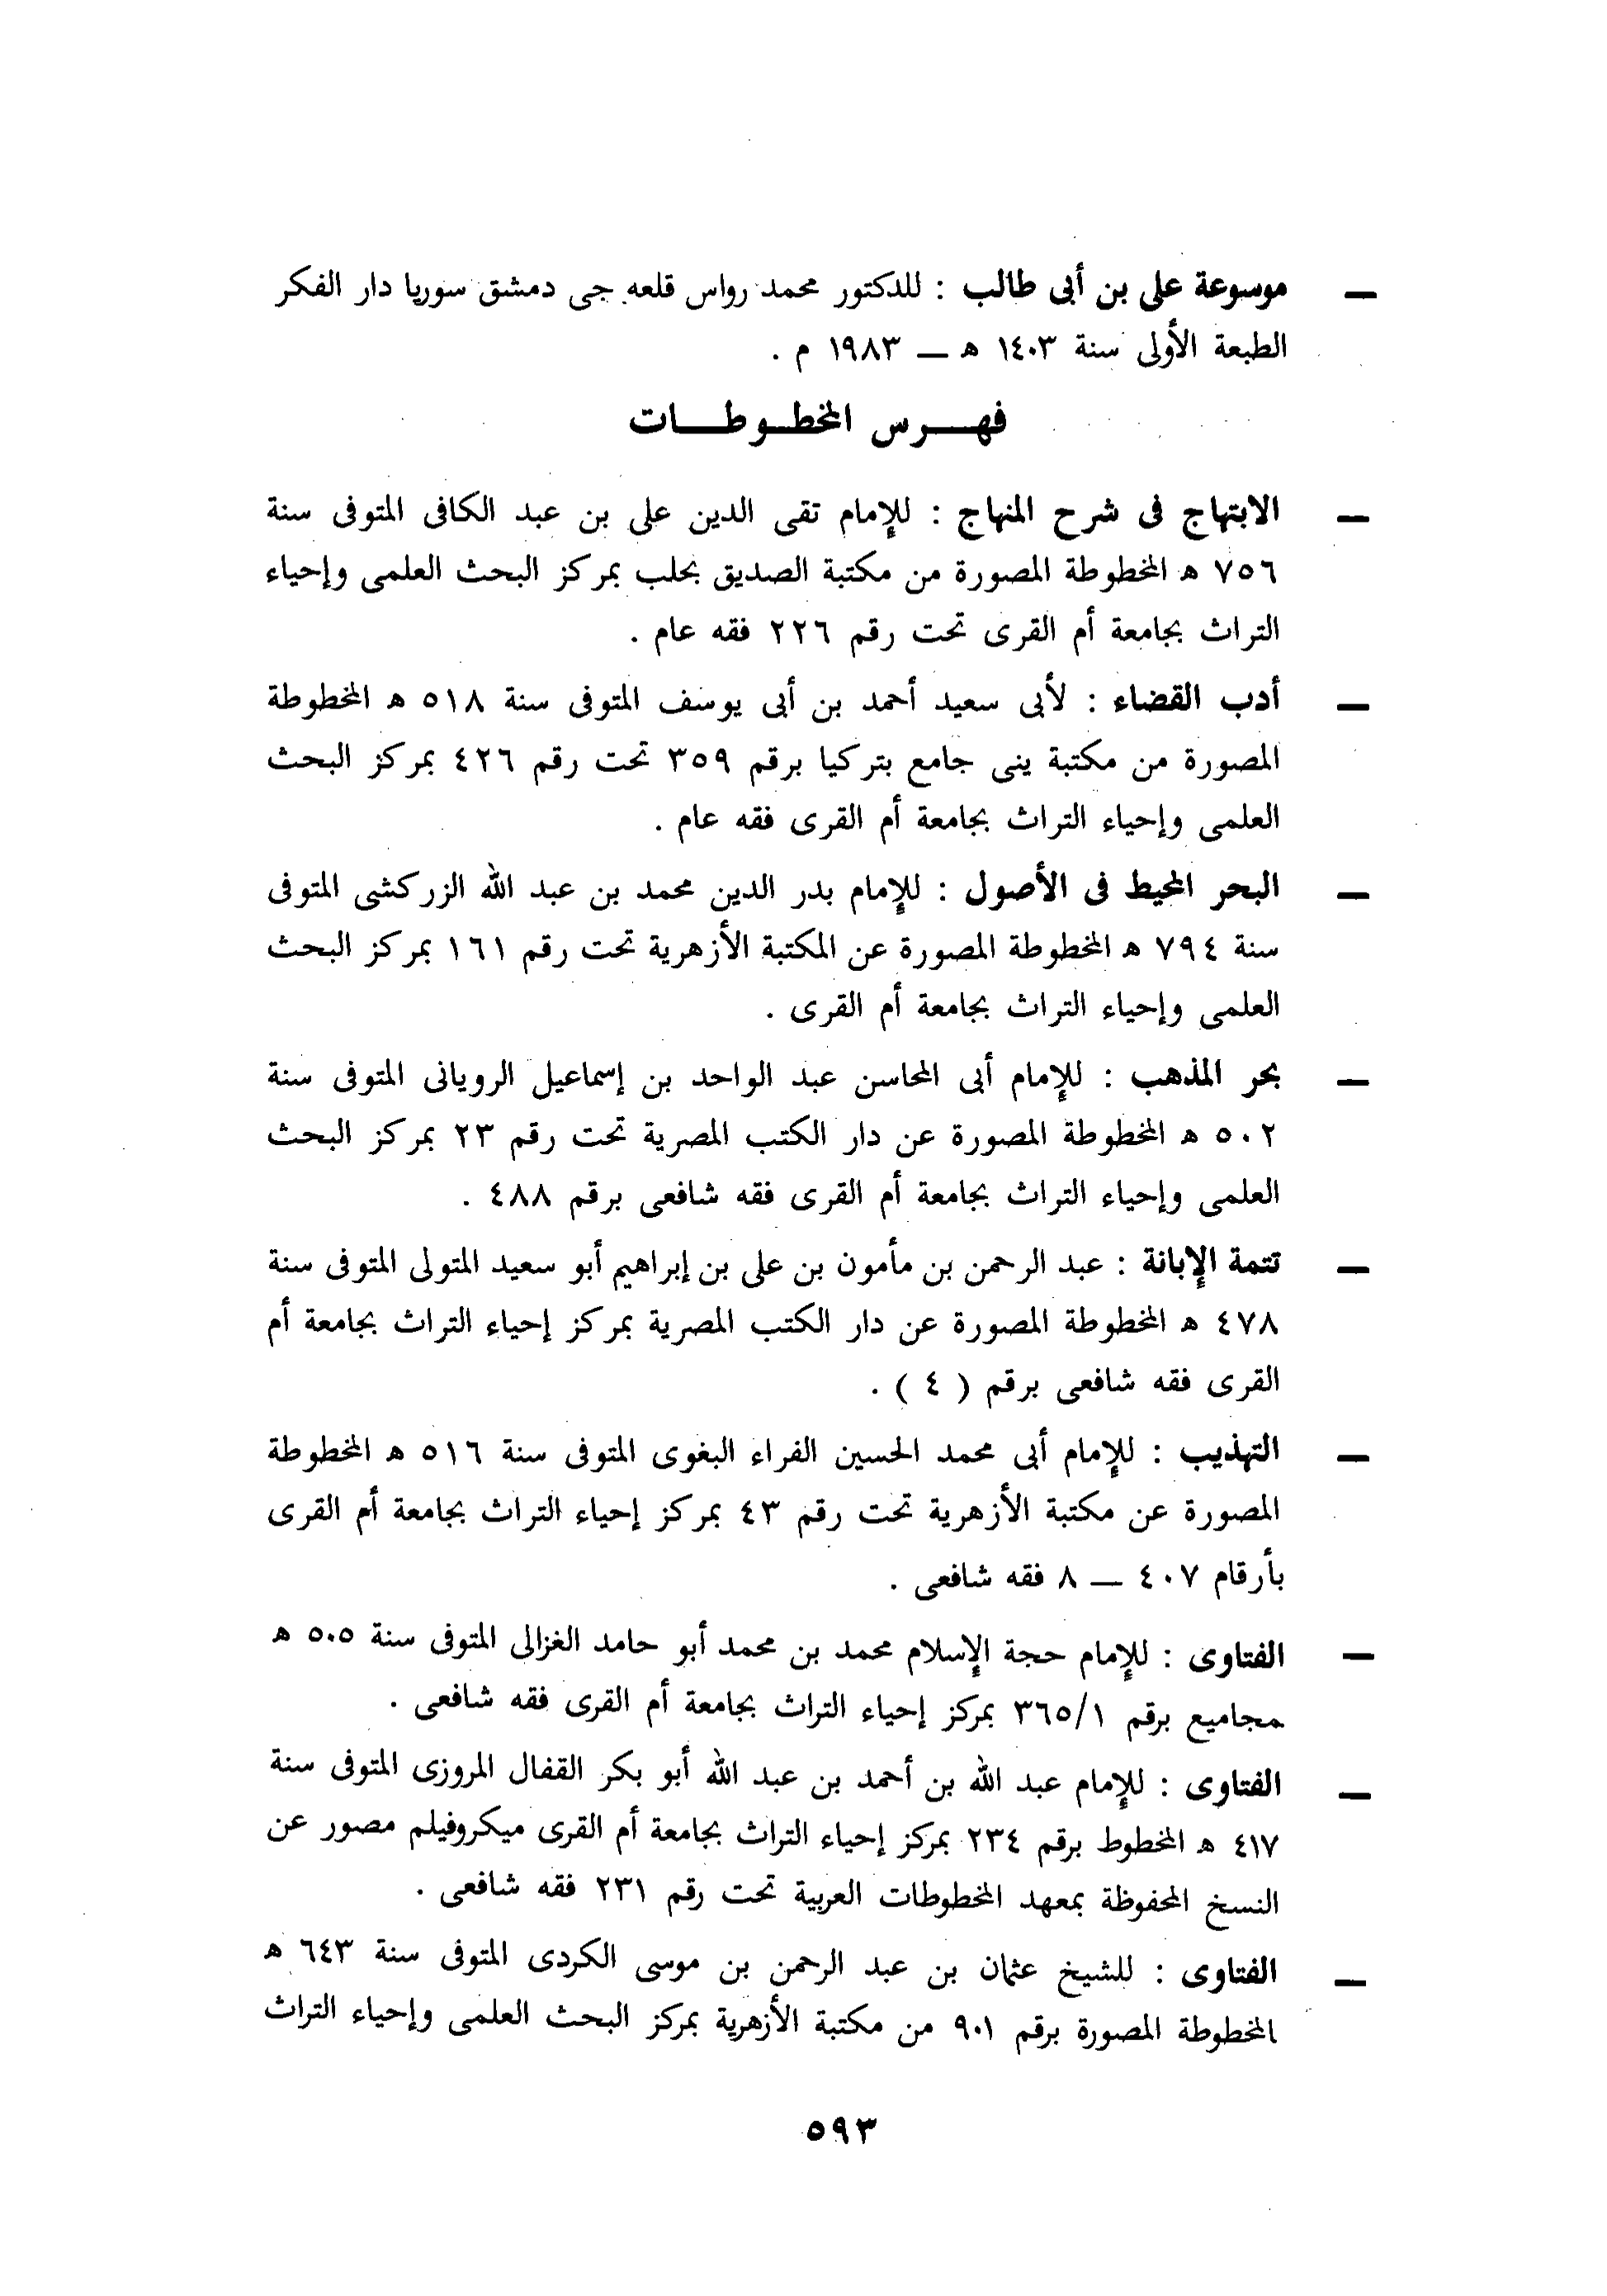 — موسوعة على بن أبى طالب : للدكتور محمد رواس قلعه جى دمشق سوريا دار الفكر
الطبعة الأولى سنة ١٤٠٣ هـ — ١٩٨٣ م .
فهرس المخطوطات
— الابتهاج فى شرح المنهاج : للإمام تقى الدين على بن عبد الكافى المتوفى سنة
٧٥٦ هـ المخطوطة المصورة من مكتبة الصديق بحلب بمركز البحث العلمى وإحياء
التراث بجامعة أم القرى تحت رقم ٢٢٦ فقه عام .
— أدب القضاء : لأبى سعيد أحمد بن أبى يوسف المتوفى سنة ٥١٨ هـ المخطوطة
المصورة من مكتبة ينى جامع بتركيا برقم ٣٥٩ تحت رقم ٤٢٦ بمركز البحث
العلمى وإحياء التراث بجامعة أم القرى فقه عام .
— البحر المحيط فى الأصول : للإمام بدر الدين محمد بن عبد الله الزركشى المتوفى
سنة ٧٩٤ هـ المخطوطة المصورة عن المكتبة الأزهرية تحت رقم ١٦١ بمركز البحث
العلمى وإحياء التراث بجامعة أم القرى .
— بحر المذهب : للإمام أبى المحاسن عبد الواحد بن إسماعيل الرويانى المتوفى سنة
٥٠٢ هـ المخطوطة المصورة عن دار الكتب المصرية تحت رقم ٢٣ بمركز البحث
العلمى وإحياء التراث بجامعة أم القرى فقه شافعى برقم ٤٨٨ .
— تتمة الإبانة : عبد الرحمن بن مأمون بن على بن إبراهيم أبو سعيد المتولى المتوفى سنة
٤٧٨ هـ المخطوطة المصورة عن دار الكتب المصرية بمركز إحياء التراث بجامعة أم
القرى فقه شافعى برقم ( ٤ ) .
— التهذيب : للإمام أبى محمد الحسين الفراء البغوى المتوفى سنة ٥١٦ هـ المخطوطة
المصورة عن مكتبة الأزهرية تحت رقم ٤٣ بمركز إحياء التراث بجامعة أم القرى
بأرقام ٤٠٧ — ٨ فقه شافعى .
— الفتاوى : للإمام حجة الإسلام محمد بن محمد أبو حامد الغزالى المتوفى سنة ٥٠٥ هـ
مجاميع برقم ٣٦٥/١ بمركز إحياء التراث بجامعة أم القرى فقه شافعى .
— الفتاوى : للإمام عبد الله بن أحمد بن عبد الله أبو بكر القفال المروزى المتوفى سنة
٤١٧ هـ المخطوط برقم ٢٣٤ بمركز إحياء التراث بجامعة أم القرى ميكروفيلم مصور عن
النسخ المحفوظة بمعهد المخطوطات العربية تحت رقم ٢٣١ فقه شافعى .
— الفتاوى : للشيخ عثمان بن عبد الرحمن بن موسى الكردى المتوفى سنة ٦٤٣ هـ
المخطوطة المصورة برقم ٩٠١ من مكتبة الأزهرية بمركز البحث العلمى وإحياء التراث
٥٩٣